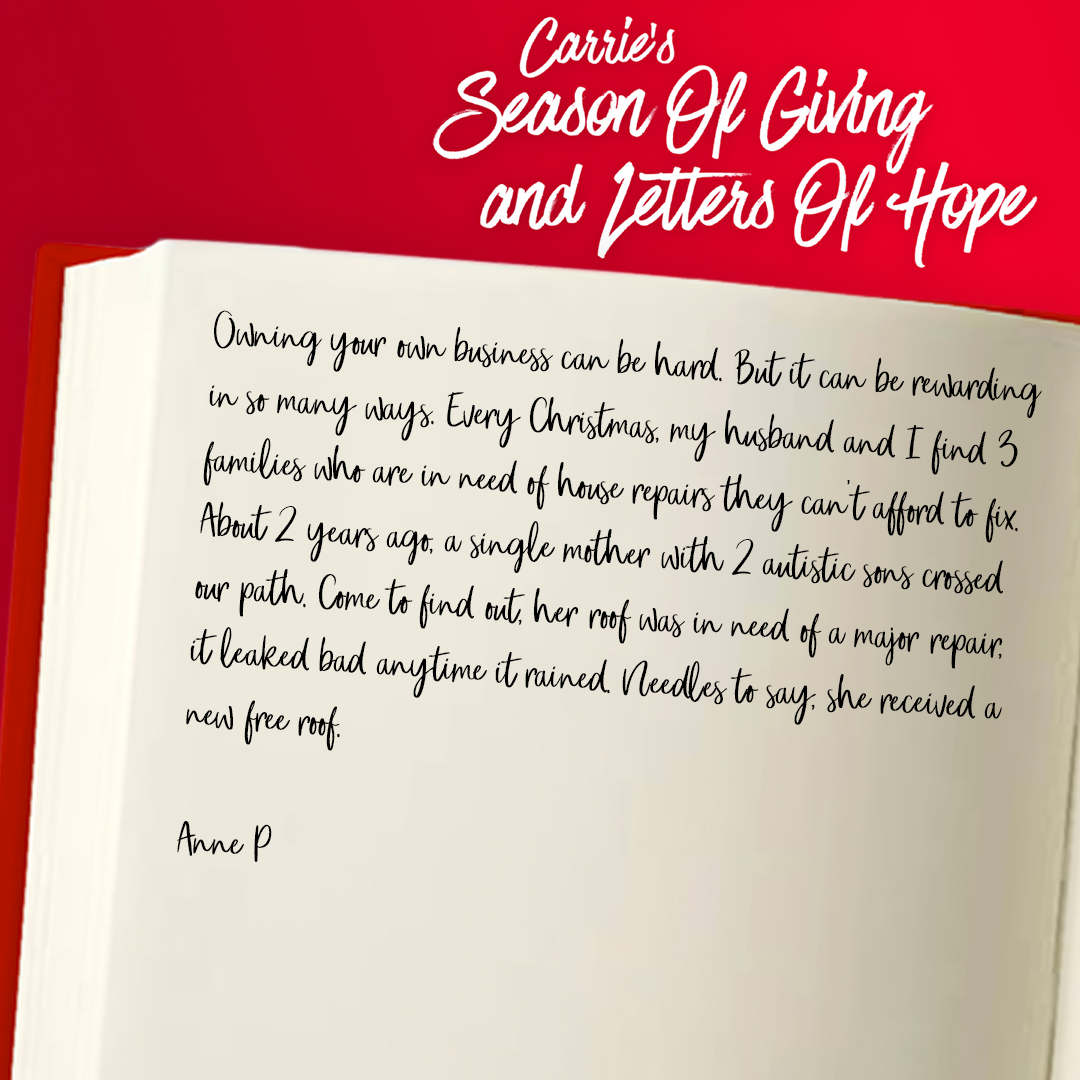 Carrie's
Season Of Giving
and Letters Of Hope
Owning your own business can be hard. But it can be rewarding
in so many ways. Every Christmas, my husband and I find 3
families who are in need of house repairs they can't afford to fix.
About 2 years ago, a single mother with 2 autistic sons crossed
our path. Come to find out, her roof was in need of a major repair,
it leaked bad anytime it rained. Needles to say, she received a
new free roof.
Anne P